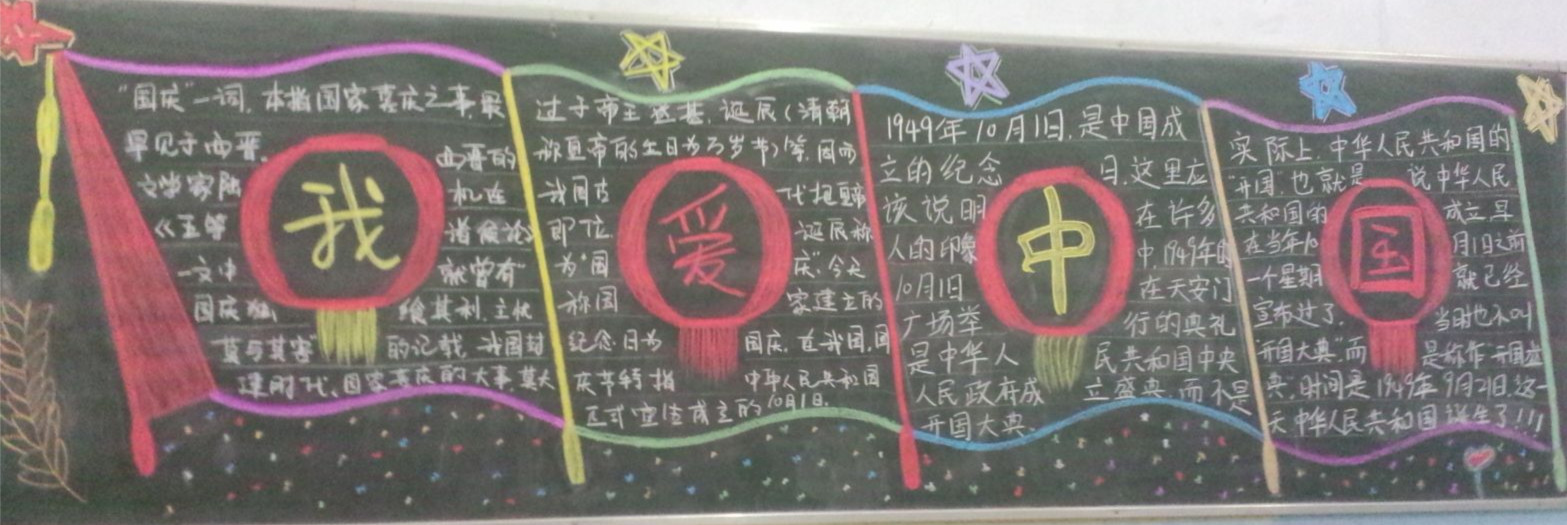 "国庆"一词,本指国家喜庆之事,最
早见于西晋。西晋的
文学家陆机在
《五等诸侯论》
一文中就曾有"
国庆独飨其利,主忧
莫与其害"的记载,我国封
建时代、国家喜庆的大事莫大
过于帝王登基、诞辰(清朝
称皇帝的生日为万岁节)等,因而
我国古代把皇帝
即位、诞辰称
为"国庆"。今天
称国家建立的
纪念日为国庆。在我国,国
庆节特指中华人民共和国
正式宣告成立的10月1日。
我
爱
1949年10月1日,是中国成
立的纪念日,这里应
该说明在许多
人的印象中1949年的
10月1日在天安门
广场举行的典礼
是中华人民共和国中央
人民政府成立盛典,而不是
开国大典.
中
实际上,中华人民共和国的
"开国",也就是说中华人民
共和国的成立早
在当年10月1日之前
一个星期就已经
宣布过了,当时也不叫
"开国大典",而是称作"开国盛
典,时间是1949年9月21日.这一
天中华人民共和国诞生了!!!
国